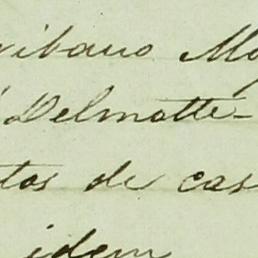 ribano Ma
Delmotte-
tos de cas
idem